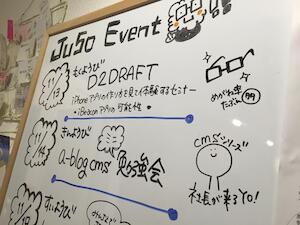 JuSo Event !!
もくようび
13
D2DRAFT
iPhoneアプリの作り方を見て体験するセミナー
・iBeaconアプリの可能性・
めがね率
たぶん 99
きんようび
14
a-blog cms 勉強会
cmsシリーズ
社長が来るYO!
すいようび
19